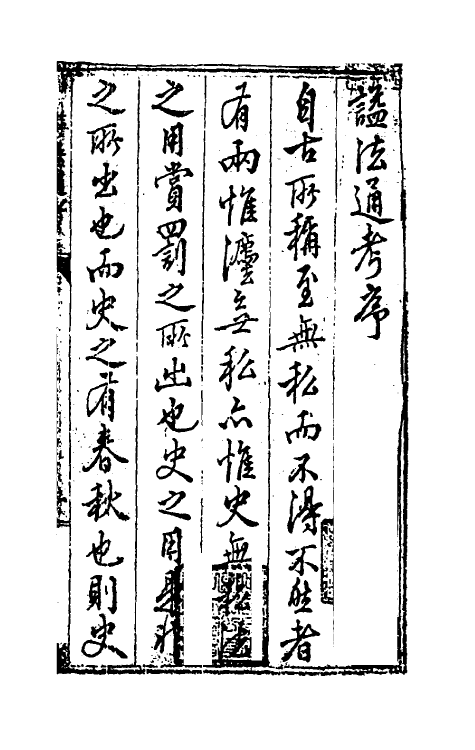 諡法通考序
自古所稱至無私而不得不者
有兩惟灋無私亦惟史無私法
之用賞罰之所出也史之用是非
之所出也而史之有春秋也則史